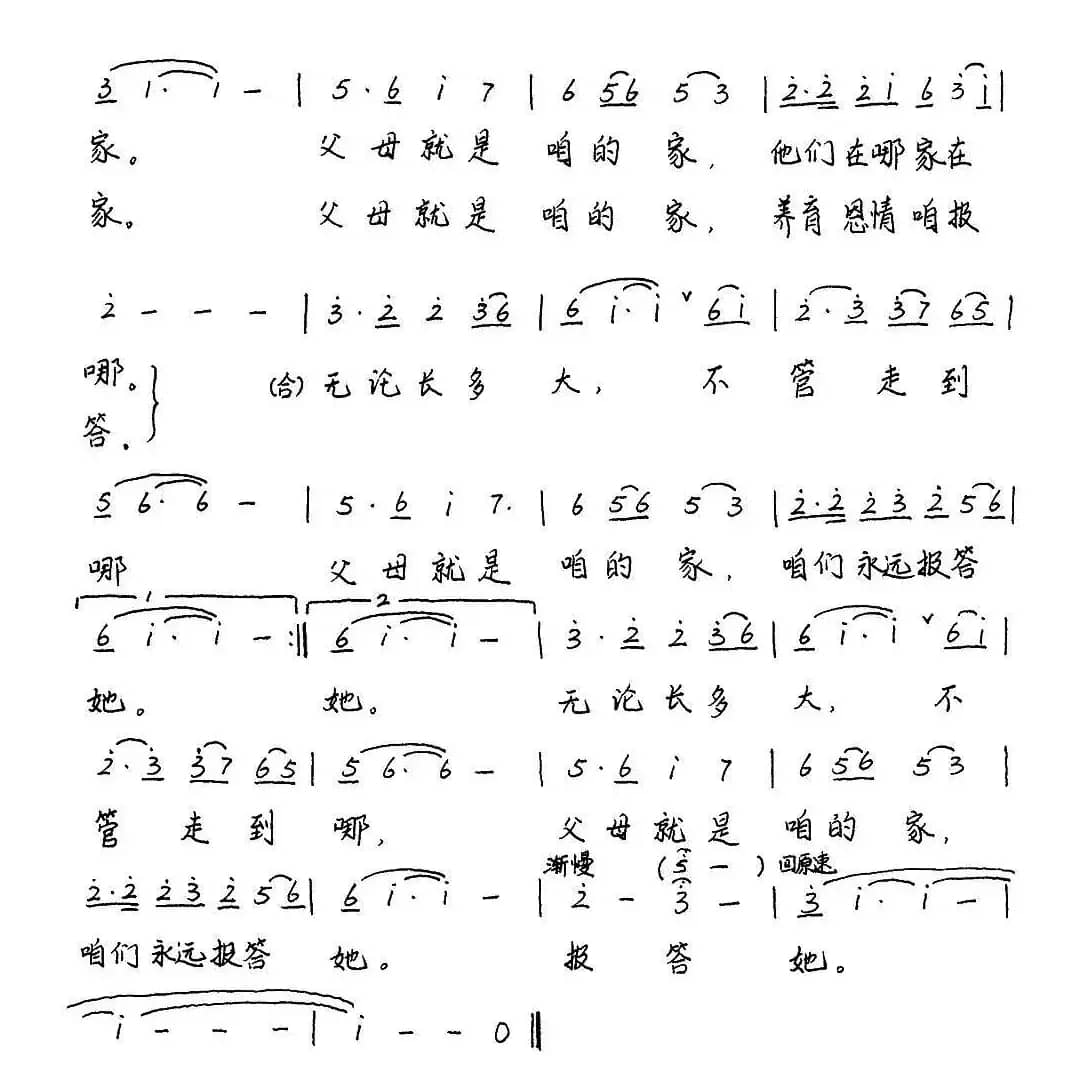 3 i · i － | 5 · 6 i 7 | 6 56 5 3 | 2̇ · 2̇ 2̇ i 6 3̇ i |
家。 父母就是 咱的家, 他们在哪家在
家。 父母就是 咱的家, 养育恩情咱报
2̇ － － － | 3̇ · 2̇ 2̇ 3̇6 | 6 i · i ∨ 6i | 2̇ · 3̇ 3̇7 65 |
哪。 (合)无论长多 大, 不 管 走到
答.
5 6 · 6 － | 5 · 6 i 7. | 6 56 5 3 | 2̇ · 2̇ 2̇ 3̇ 2̇ 5 6 |
哪 父母就是 咱的家, 咱们永远报答
1 2
6 i · i － :|| 6 i · i － | 3̇ · 2̇ 2̇ 3̇6 | 6 i · i ∨ 6i |
她。 她。 无论长多 大, 不
2̇ · 3̇ 3̇7 65 | 5 6 · 6 － | 5 · 6 i 7 | 6 56 5 3 |
管 走到 哪, 父母就是 咱的家,
渐慢 (5̇ －) 回原速
2̇ · 2̇ 2̇ 3̇ 2̇ 5 6 | 6 i · i － | 2̇ － 3̇ － | 3̇ i · i － |
咱们永远报答 她。 报 答 她。
i － － － | i － － 0 ||